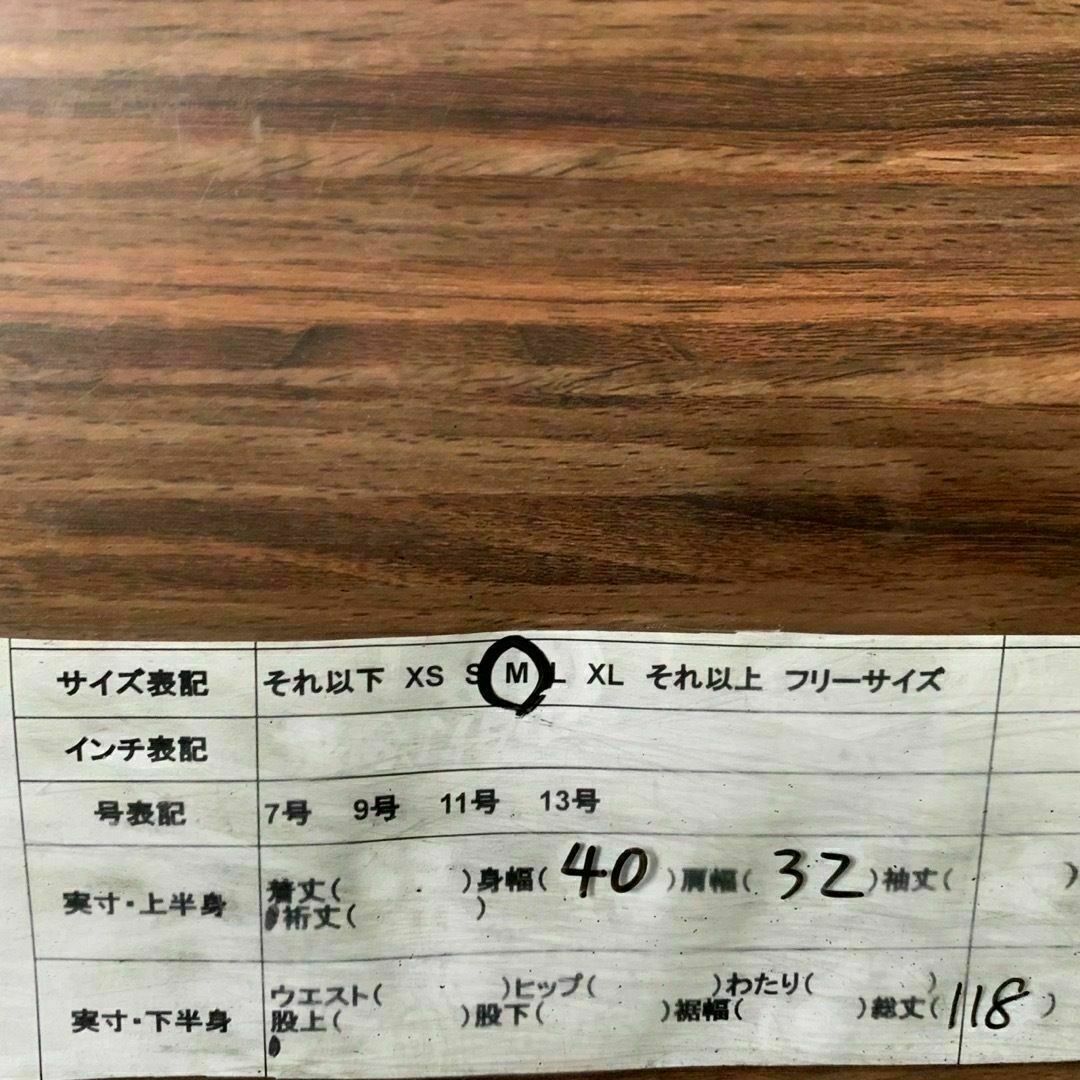 サイズ表記 それ以下 XS S M L XL それ以上 フリーサイズ
インチ表記
号表記 7号 9号 11号 13号
実寸・上半身 着丈( )身幅( 40 )肩幅( 32 )袖丈( )
裄丈( )
実寸・下半身 ウエスト( )ヒップ( )わたり( )
股上( )股下( )裾幅( )総丈( 118 )